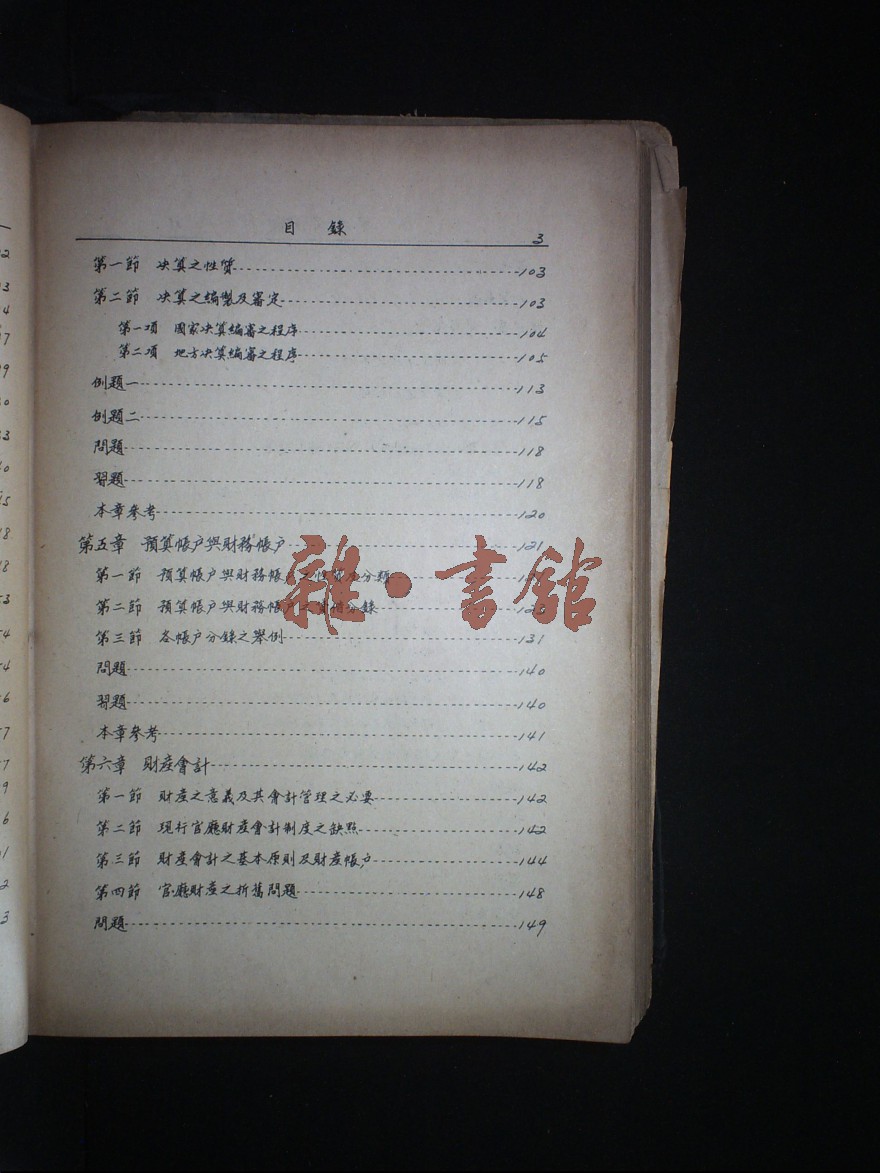 目錄 3
第一節 决算之性質 103
第二節 决算之編製及審定 103
第一項 國家决算編審之程序 104
第二項 地方决算編審之程序 105
例題一 113
例題二 115
問題 118
習題 118
本章參考 120
第五章 預算帳户與財務帳户 121
第一節 預算帳户與財務帳户之性質及分類
第二節 預算帳户與財務帳户之 分錄
第三節 各帳户分錄之舉例 131
問題 140
習題 140
本章參考 141
第六章 財產會計 142
第一節 財產之意義及其會計管理之必要 142
第二節 現行官廳財產會計制度之缺點 142
第三節 財產會計之基本原則及財產帳户 144
第四節 官廳財產之折舊問題 148
問題 149
雜·書館